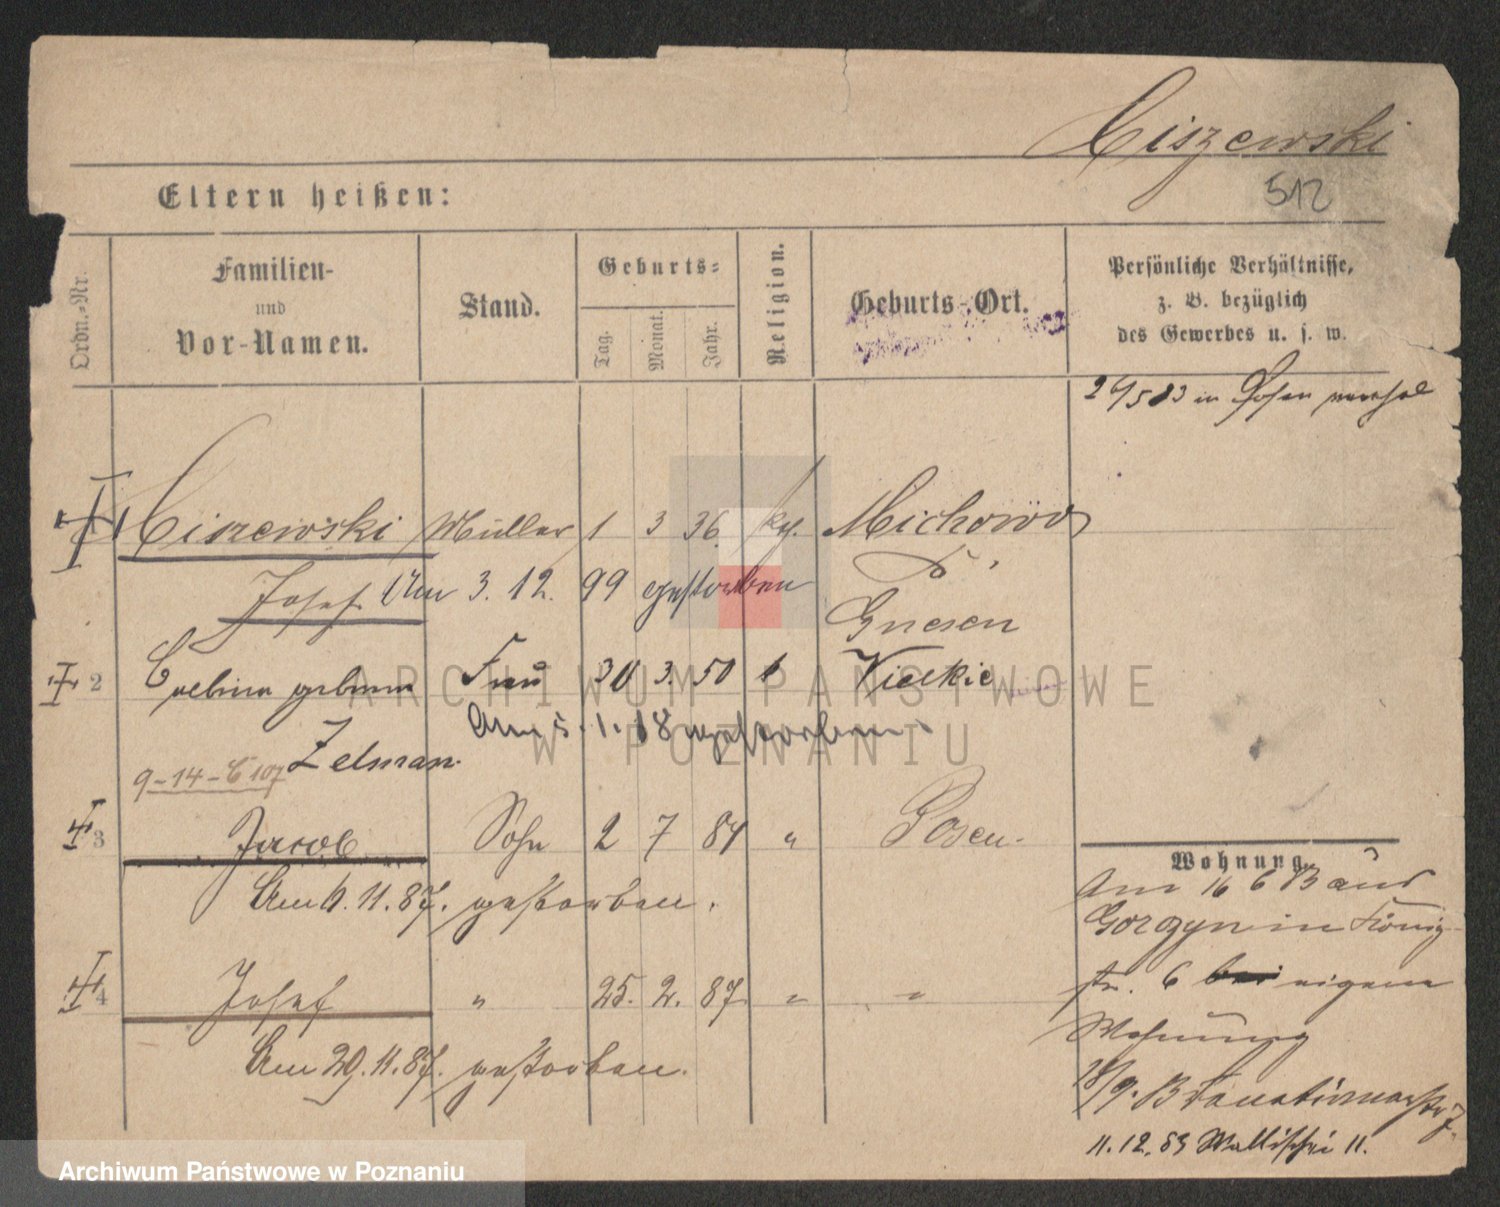 Ciszewski
512
Eltern heißen:
Ordn.-Nr.
Familien-
und
Vor-Namen.
Stand.
Geburts-
Tag.
Monat.
Jahr.
Religion.
Geburts-Ort.
Persönliche Verhältnisse,
z. B. bezüglich
des Gewerbes u. s. w.
in Posen
Ciszewski Müller 1 3 36 kg.
Josef Am 3. 12. 99 gestorben
Gnesen
2 geborene Frau 30 3. 50
Am 5. 1. 18 gestorben
Zelman.
9-14-C 107
3 Jacob Sohn 2 7 84 " Posen.
Am 6. 11. 87. gestorben.
4 Josef " 25. 2. 87 " "
Am 29. 11. 87. gestorben.
Wohnung.
Am 16 6 83 aus
Gorczyn in König
str. 6 bei eigene
Wohnung
11. 12. 83 Wallischei 11.
ARCHIWUM PAŃSTWOWE
W POZNANIU
Archiwum Państwowe w Poznaniu